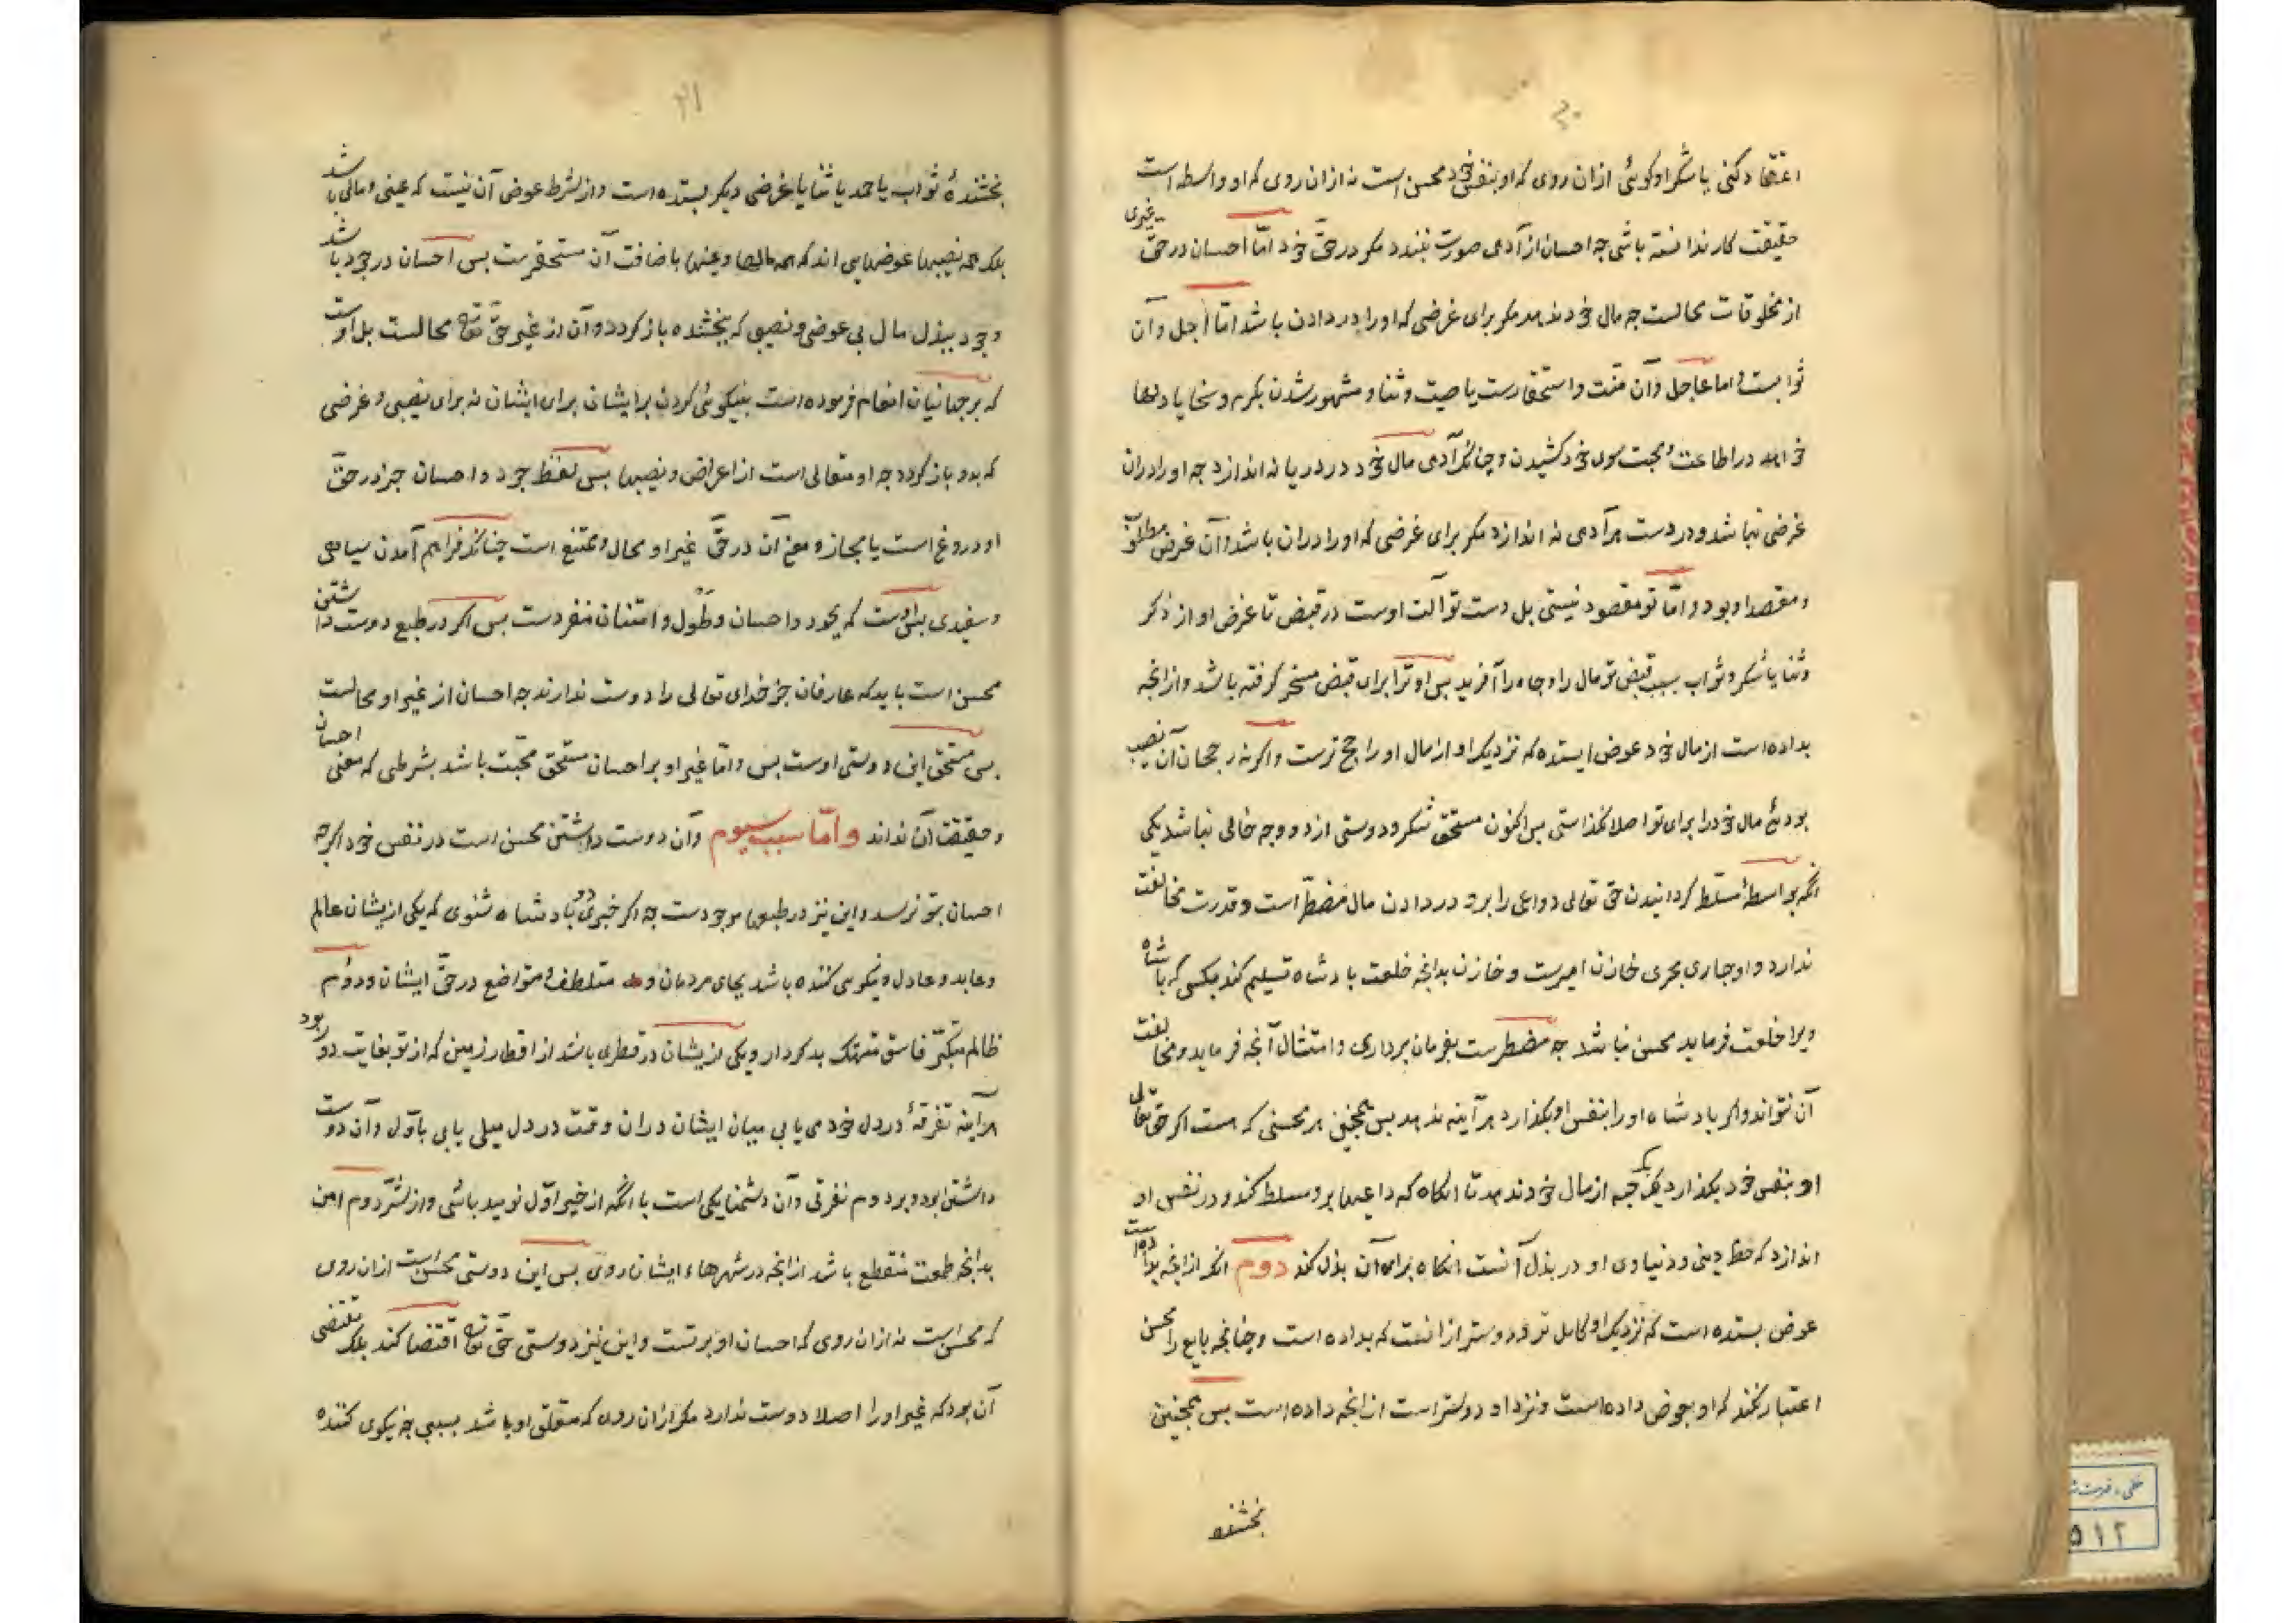 ۲۰
اعتقاد کنی یا شکر او کوئی ازان روی که او بنفس خود محسن است نه ازان روی که او واسطه است
حقیقت کار ندانسته باشی جه احسان از آدمی صورت نبندد مکر در حقّ خود امّا احسان در حقّ غیری
از مخلوقات محالست جه مال خود ندهد مکر برای غرضی که او را در دادن باشد امّا آجل وآن
ثوابست واما عاجل وآن منّت واستحقارست یا صیت وثنا ومشهور شدن بکرم وسخا یا دلها
خواهد در اطاعت ومحبت سوی خود کشیدن وچنانکه آدمی مال خود در دریا نه اندازد جه او را دران
غرضی نباشد ودر دست هر آدمی نه اندازد مکر برای غرضی که او را دران باشد وآن غرض مطلوب
ومقصد او بود وامّا تو مقصود نیستی بل دست تو آلت اوست در قبض تا غرض او از ذکر
وثنا یا شکر وثواب بسبب قبض تو مال را وجاه را آفرید بس او ترا برای قبض مسخر کرفته باشد وازانجه
بداده است از مال خود عوض ایستده که نزدیک او از مال او راجح ترست واکر نه رجحان آن نصیب
بودئ مال خود را برای تو اصلا نکذاستی بس اکنون مستحق شکر ودوستی از دو وجه خالی نباشد یکی
آنکه بواسطۀ مسلّط کردانیدن حق تعالی دواعی را برو در دادن مال مضطرّ است وقدرت مخالفت
ندارد واو جاری مجری خازن امیرست وخازن بدانجه خلعت بادشاه تسلیم کند بکسی که بادشاه
ویرا خلعت فرماید محسن نباشد جه مضطرست بفرمان برداری وامتثال آنجه فرماید ومخالفت
آن نتواند واکر بادشاه او را بنفس او بکذارد هرآینه ندهد بس همچنین هر محسنی که هست اکر حق تعالی
او بنفس خود بکذارد یک حبه از مال خود ندهد تا انکاه که داعیها برو مسلط کند ودر نفس او
اندازد که حظ دینی ودنیاوی او در بذل آنست انکاه برای آن بذل کند دوم انکه ازانجه بداده است
عوض بستده است که نزدیک او کامل تر ودوستر ازانست که بداده است وچنانجه بایع را محسن
اعتبار نکنند که او بعوض داده است ونزد او دوستر است ازانجه داده است بس همچنین
بخشنده
۲۱
بخشندۀ ثواب یا حمد یا ثنا یا غرضی دیکر بستده است واز شرط عوض آن نیست که عینی ومالی باشد
بلکه همه نصیبها عوضهایی اند که همه مالها وعینها باضافت آن مستحقرست بس احسان در جود باشد
وجود ببذل مال بی عوض ونصیبی که ببخشنده باز کردد وآن از غیر حقّ تعالی محالست بل اوست
که بر جهانیان انعام فرموده است بنیکوئی کردن بر ایشان برای ایشان نه برای نصیبی وغرضی
که بدو باز کردد جه او متعالی است از اعراض ونصیبها بس لفظ جود واحسان جز در حقّ
او دروغ است یا مجاز ومعنی آن در حقّ غیر او محال وممتنع است چنانکه فراهم آمدن سیاهی
وسفیدی بس اوست که بجود واحسان وطَول وامتنان منفردست بس اکر در طبع دوست داشتن
محسن است باید که عارفان جز خدای تعالی را دوست ندارند جه احسان از غیر او محالست
بس مستحق این دوستی اوست بس وامّا غیر او بر احسان مستحق محبّت باشد بشرطی که معنی احسان
وحقیقت آن نداند وامّا سبب سیوم وآن دوست داشتن محسن است در نفس خود اکرچه
احسان بتو نرسد واین نیز در طبعها موجودست جه اکر خبر دو بادشاه شنوی که یکی ازیشان عالم
وعابد وعادل ونیکویی کننده باشد بجای مردمان و متلطف ومتواضع در حقّ ایشان ودوُم
ظالم متکبّر فاسق متهتک بدکردار ویکی ازیشان در قطری باشد از اقطار زمین که از تو بغایت دور بود
هرآینه تفرقۀ در دل خود می یابی میان ایشان دران وقت در دل میلی یابی باوّل وآن دوست
داشتن بود وبر دوم نفرتی وآن دشمنایکی است با آنکه از خیر اوّل نومید باشی واز شرّ دوم امن
بدانجه طمعت منقطع باشد ازانجه در شهرهاء ایشان روی بس این دوستی محسن است ازان روی
که محسن است نه ازان روی که احسان او برتست واین نیز دوستی حقّ تعالی اقتضا کند بلکه مقتضی
آن بود که غیر او را اصلا دوست ندارد مکر ازان روی که متعلق او باشد بسببی چه نیکوی کننده
۵۱۲